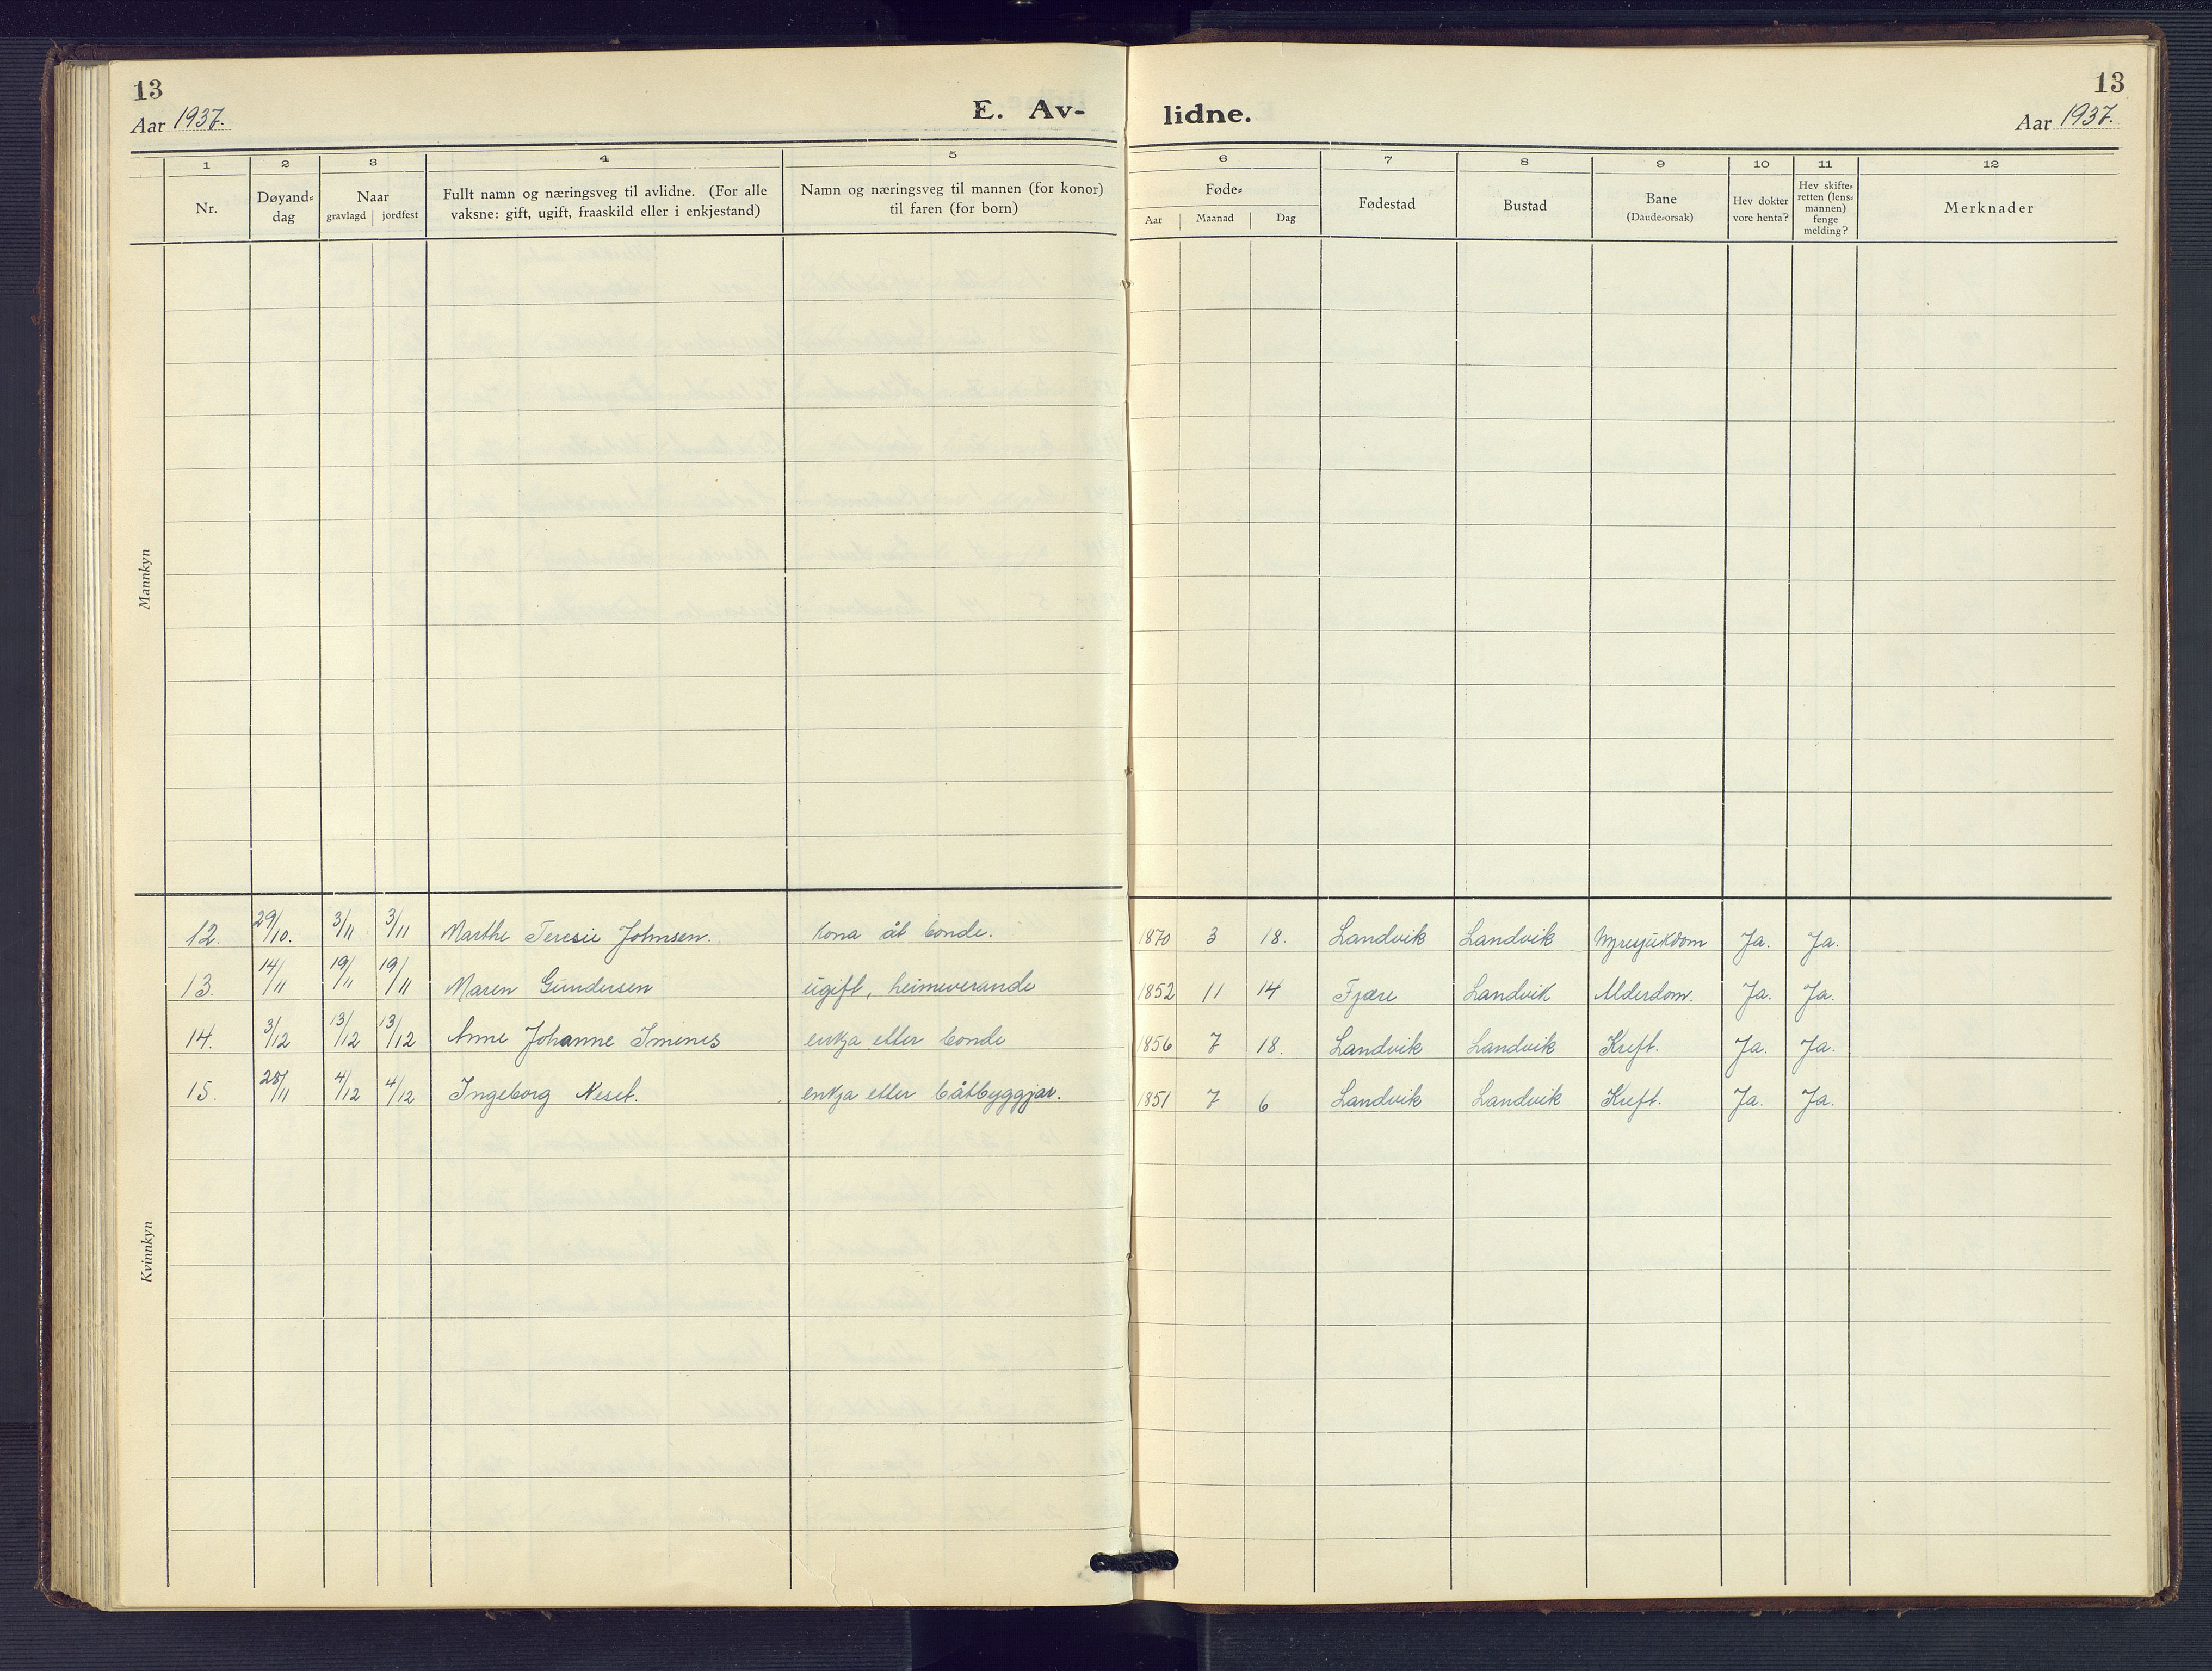 13
Aar 1937.
E. Av-
lidne.
13
Aar 1937.
1 2 3 4 5
6 7 8 9 10 11 12
Nr.
Døyand-
dag
Naar
gravlagd | jordfest
Fullt namn og næringsveg til avlidne. (For alle
vaksne: gift, ugift, fraaskild eller i enkjestand)
Namn og næringsveg til mannen (for konor)
til faren (for born)
Føde-
Aar Maanad Dag
Fødestad
Bustad
Bane
(Daude-orsak)
Hev dokter
vore henta?
Hev skifte-
retten (lens-
mannen)
fenge
melding?
Merknader
Mannkyn
Kvinnkyn
12. 29/10. 3/11 3/11 Marthe Teresie Johnsen. Kona åt bonde. 1870 3 18. Landvik Landvik Nyresjukdom Ja. Ja.
13. 14/11 19/11 19/11 Maren Gundersen ugift, heimeverande 1852 11 14 Fjære Landvik Alderdom. Ja. Ja.
14. 3/12 13/12 13/12 Anne Johanne Imenes enkja etter bonde 1856 7 18. Landvik Landvik Kreft. Ja. Ja.
15. 28/11 4/12 4/12 Ingeborg Neset. enkja etter båtbyggjar. 1851 7 6 Landvik Landvik Kreft. Ja. Ja.